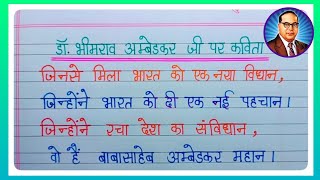 डॉ. भीमराव अम्बेडकर जी पर कविता
जिनसे मिला भारत को एक नया विधान,
जिन्होंने भारत को दी एक नई पहचान।
जिन्होंने रचा देश का संविधान,
वो हैं बाबासाहेब अम्बेडकर महान।